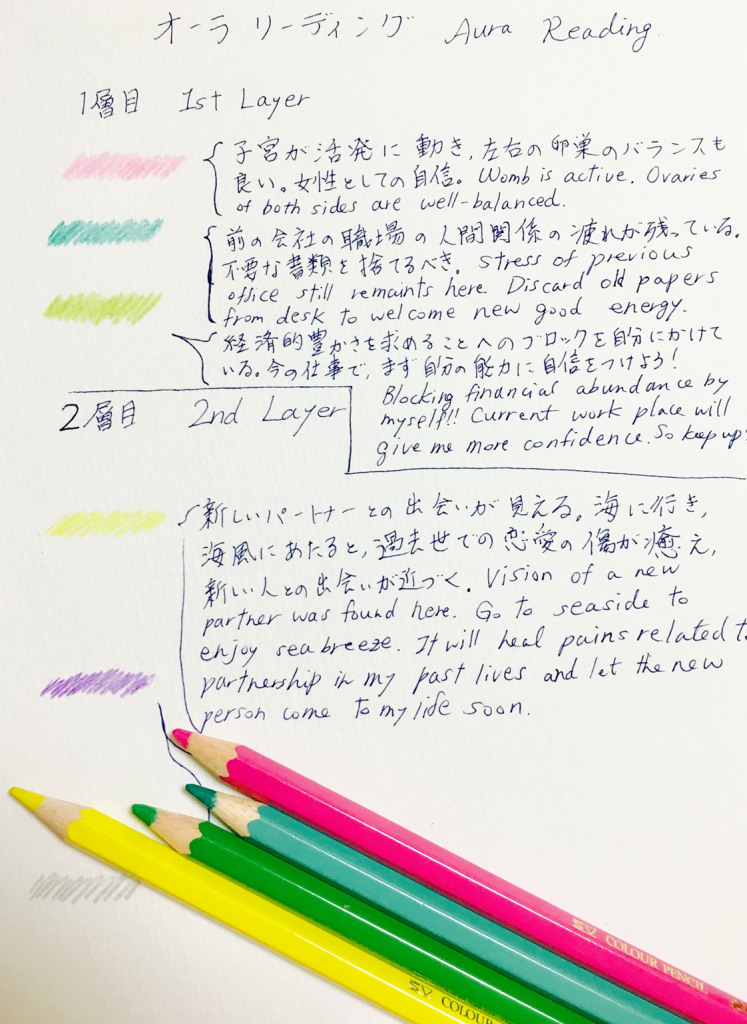 オーラ リーディング Aura Reading.
1層目 1st Layer
子宮が活発に動き,左右の卵巣のバランスも
良い。女性としての自信。Womb is active. Ovaries
of both sides are well-balanced.
前の会社の職場の人間関係の疲れが残っている。
不要な書類を捨てるべき。Stress of previous
office still remaints here. Discard old papers
from desk to welcome new good energy.
経済的豊かさを求めることへのブロックを自分にかけて
いる。今の仕事で,まず自分の能力に自信をつけよう!
Blocking financial abundance by
myself!! Current work place will
give me more confidence. So keep up
2層目 2nd Layer
新しいパートナーとの出会いが見える。海に行き,
海風にあたると,過去世での恋愛の傷が癒え,
新しい人との出会いが近づく. Vision of a new
partner was found here. Go to seaside to
enjoy sea breeze. It will heal pains related t
partnership in my past lives and let the new
person come to my life soon.
COLOUR PENCIL
COLOUR